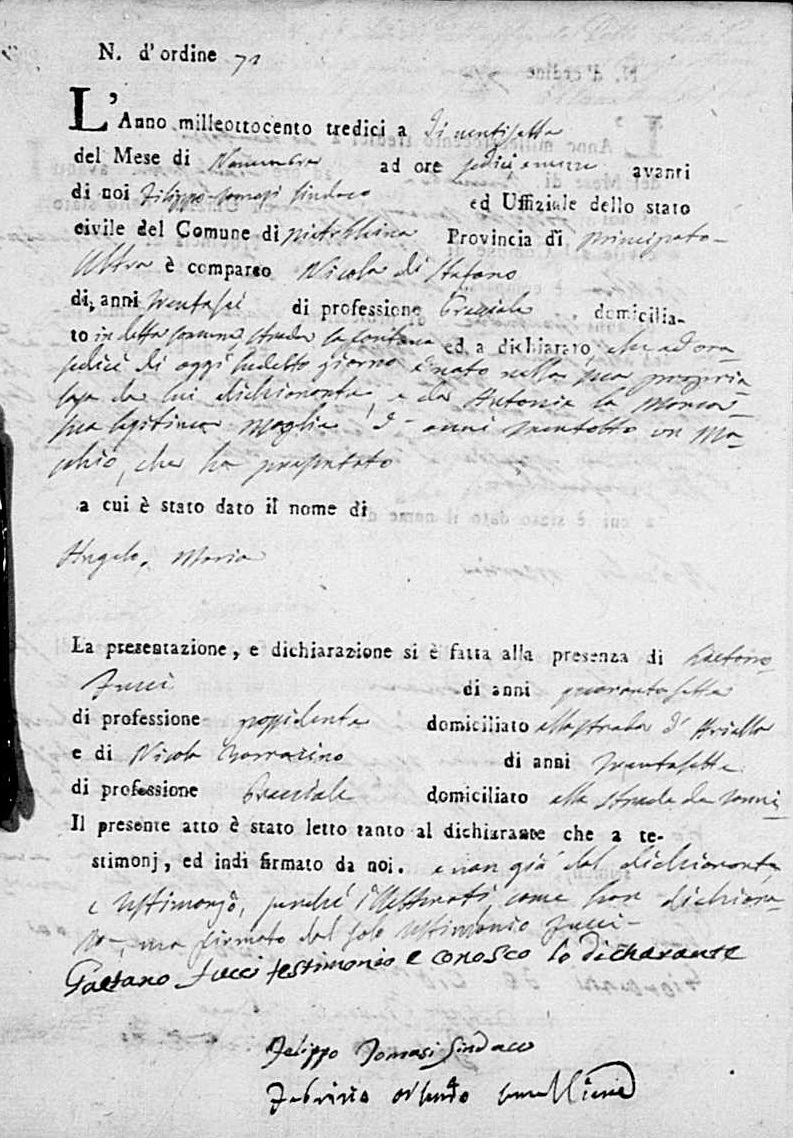 N. d'ordine 71
L'Anno milleottocento tredici a di ventisette
del Mese di Novembre ad ore sedici e mezze avanti
di noi Filippo Tomasi Sindaco ed Uffiziale dello stato
civile del Comune di pietrelcina Provincia di principato
Ultra è comparso Nicola di Stefano
di anni trentasei di professione Bracciale domicilia-
to in detta comune strada la fontana ed a dichiarato, che ad ora
sedici di oggi sudetto giorno è nato nella sua propria
casa da lui dichiarante, e da Antonia la Monica
sua legitima Moglie d'anni trentotto un Ma-
schio, che ha presentato
a cui è stato dato il nome di
Angelo, Maria
La presentazione, e dichiarazione si è fatta alla presenza di Gaetano
Fucci di anni quarantasette
di professione propidente domiciliato alla strada d' Ariella
e di Nicola di anni trentasette
di professione Bracciale domiciliato alla strada da
Il presente atto è stato letto tanto al dichiarante che a te-
stimonj, ed indi firmato da noi. e non già dal dichiarante,
e testimonj, perché illetterati, come han dichiara-
to, ma firmato dal solo testimonio Fucci-
Gaetano Fucci testimonio e conosco lo dicharante
Felippo Tomasi Sindaco
Fabrizio Orlando